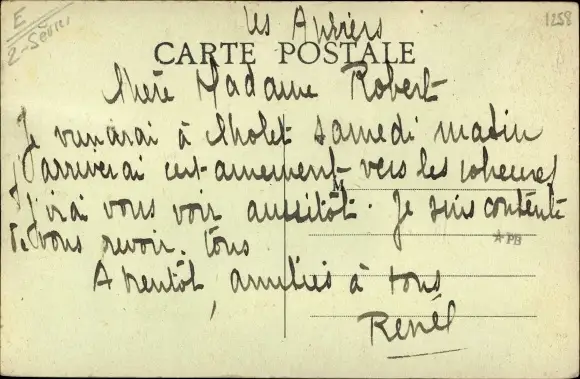 E
2-Sèvres
1258
Les
CARTE POSTALE
Chère Madame Robert
Je vienarai à Cholet samedi matin
J'arriverai certainement vers les 10heures
J'irai vous voir aussitôt. Je suis contente
De vous revoir. tous
A bientôt, amitiés à tous
M
PB
René